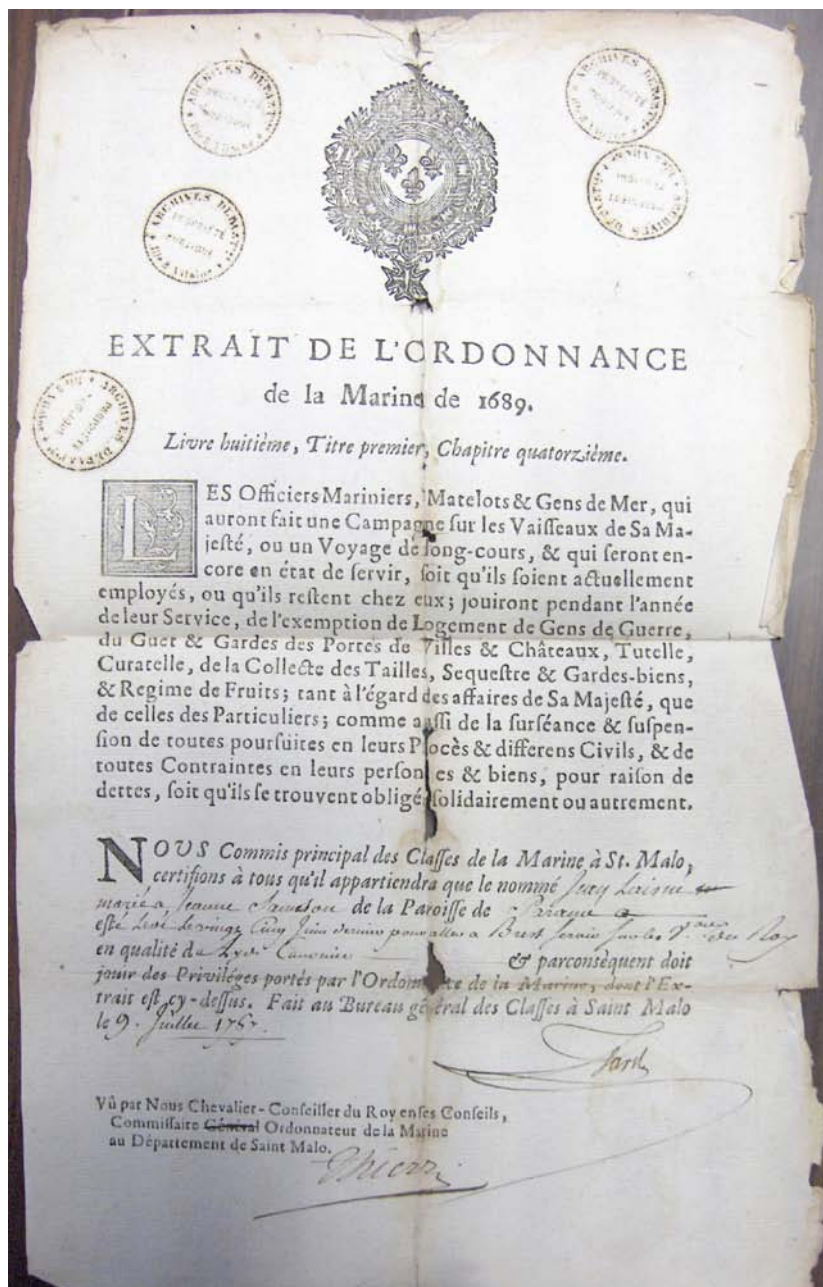 ARCHIVES DÉPARTles
PROPRIÉTÉ
PUBLIQUE
EXTRAIT DE L'ORDONNANCE
de la Marine de 1689.
Livre huitième, Titre premier, Chapitre quatorzième.
LES Officiers Mariniers, Matelots & Gens de Mer, qui
auront fait une Campagne ſur les Vaiſſeaux de Sa Ma-
jeſté, ou un Voyage de long-cours, & qui ſeront en-
core en état de ſervir, ſoit qu'ils ſoient actuellement
employés, ou qu'ils reſtent chez eux; jouiront pendant l'année
de leur Service, de l'exemption de Logement de Gens de Guerre,
du Guet & Gardes des Portes de Villes & Châteaux, Tutelle,
Curatelle, de la Collecte des Tailles, Sequeſtre & Gardes-biens,
& Regime de Fruits; tant à l'égard des affaires de Sa Majeſté, que
de celles des Particuliers; comme auſſi de la surſéance & ſuſpen-
ſion de toutes pourſuites en leurs Procès & differens Civils, & de
toutes Contraintes en leurs perſonnes & biens, pour raiſon de
dettes, ſoit qu'ils ſe trouvent obligés ſolidairement ou autrement.
NOUS Commis principal des Claſſes de la Marine à St. Malo,
certifions à tous qu'il appartiendra que le nommé Jean
marié a Jeanne Samson de la Paroiſſe de Parame a
esté Levé Le vingt Cinq Juin dernier pour aller a Brest Servir Sur les Vaux du Roy
en qualité de & parconſéquent doit
jouir des Priviléges portés par l'Ordonnance de la Marine, dont l'Ex-
trait eſt cy-deſſus. Fait au Bureau général des Claſſes à Saint Malo
le 9. Juillet
Vû par Nous Chevalier-Conſeiller du Roy en ſes Conſeils,
Commiſſaire Général Ordonnateur de la Marine
au Département de Saint Malo.